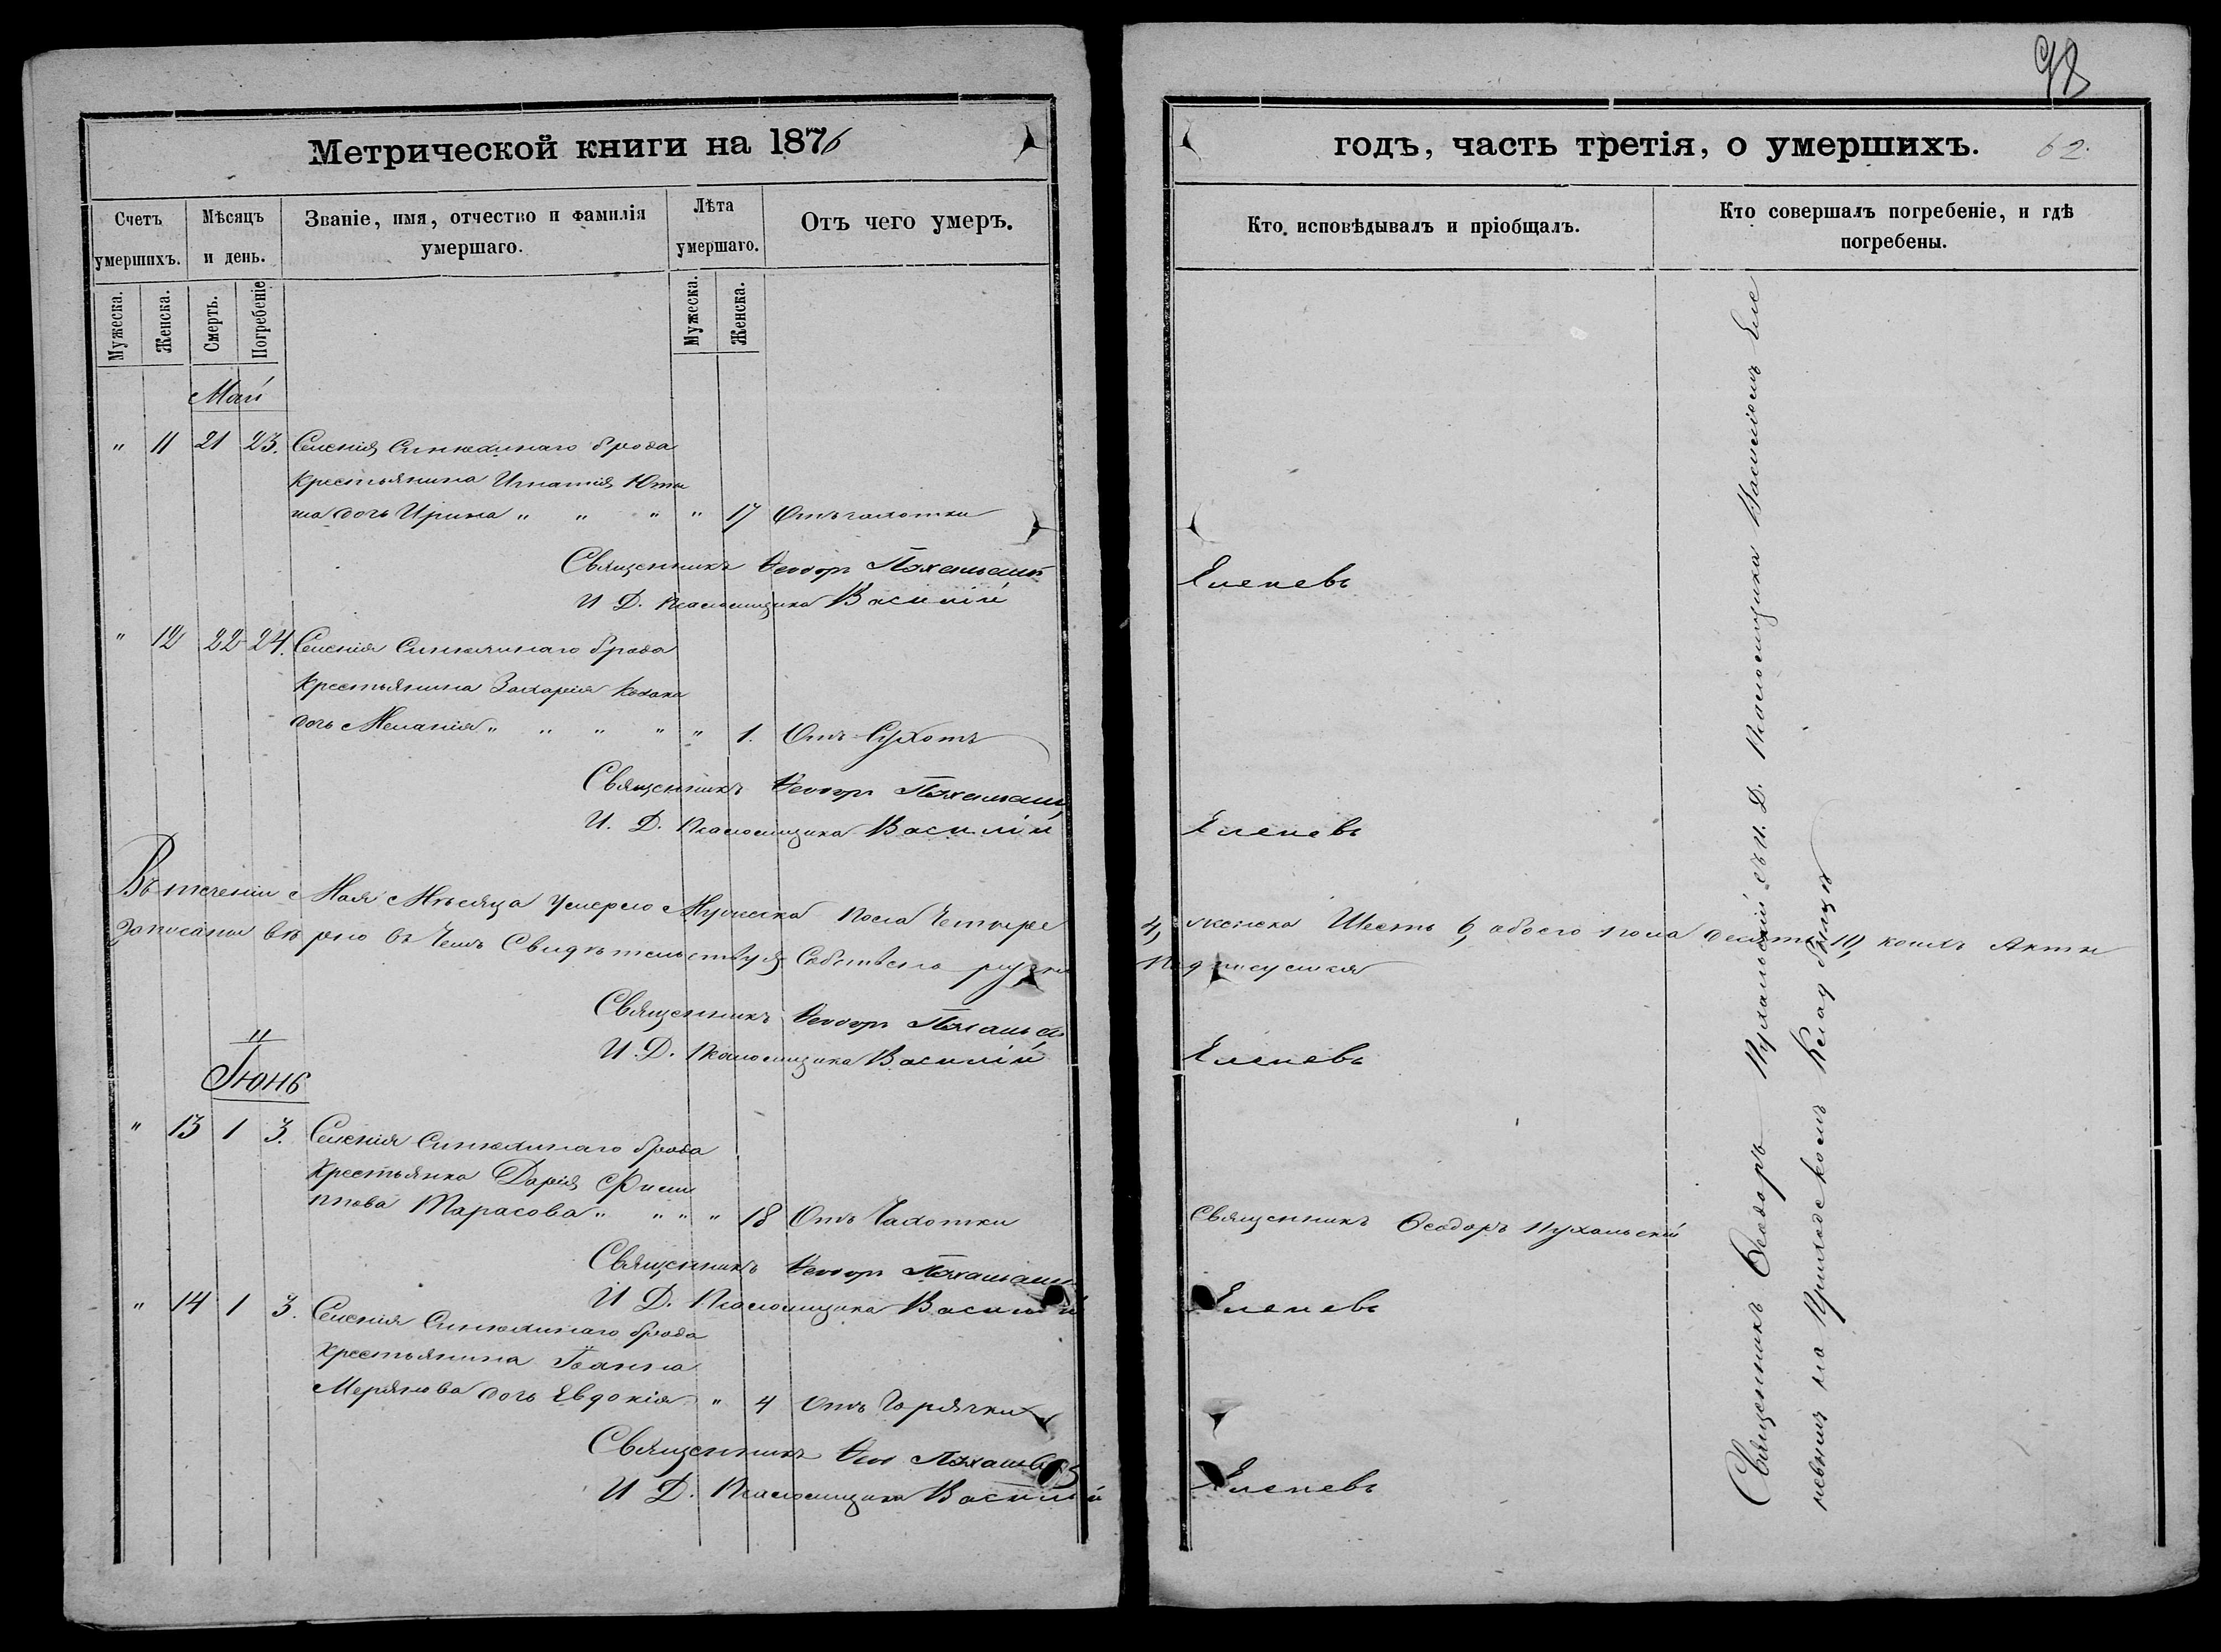 Метрической книги на 1876
Счетъ умершихъ.
Мѣсяцъ и день.
Званіе, имя, отчество и фамилія умершаго.
Лѣта умершаго.
Отъ чего умеръ.
Мужеска.
Женска.
Смерть.
Погребеніе
Мужеска.
Женска.
Май
" 11 21 23. Селенія Синюхинаго брода
Крестьянина Игнатія
дочь Ирина " " " " 17 Отъ чахотки
Священникъ Ѳеодоръ
И. Д. Псаломщика Василій
" 12 22 24. Селенія Синюхинаго брода
Крестьянина Захарія Козака
дочь Меланія " " " " " 1. Отъ Сухотъ
Священникъ Ѳеодоръ
И. Д. Псаломщика Василій
Въ теченіи Мая Мѣсяца Умерло Мужеска пола Четыре
Записаны вѣрно въ Чемъ Свидѣтельствуя
Священникъ Ѳеодоръ
И. Д. Псаломщика Василій
Іюнь
" 13 1 3. Селенія Синюхинаго брода
Крестьянка Дарія Фили
ппова Тарасова " " " " 18 Отъ Чахотки
Священникъ Ѳеодоръ
И. Д. Псаломщика Василій
" 14 1 3. Селенія Синюхинаго брода
Крестьянина Іоанна
дочь Евдокія " 4 Отъ Горячки
Священникъ
И. Д. Псаломщика Василій
98
годъ, часть третія, о умершихъ. 62.
Кто исповѣдывалъ и пріобщалъ.
Кто совершалъ погребеніе, и гдѣ погребены.
Еленевъ
Еленевъ
4, женска Шесть 6, обоего пола десять 10, коихъ Акты
Подписуемся
Еленевъ
Священникъ Ѳеодоръ Пухальскій
Еленевъ
Еленевъ
Священникъ Ѳеодоръ Пухальскій съ И. Д. Псаломщика Василіемъ Еле
невымъ на Приходскомъ Кладбищѣ